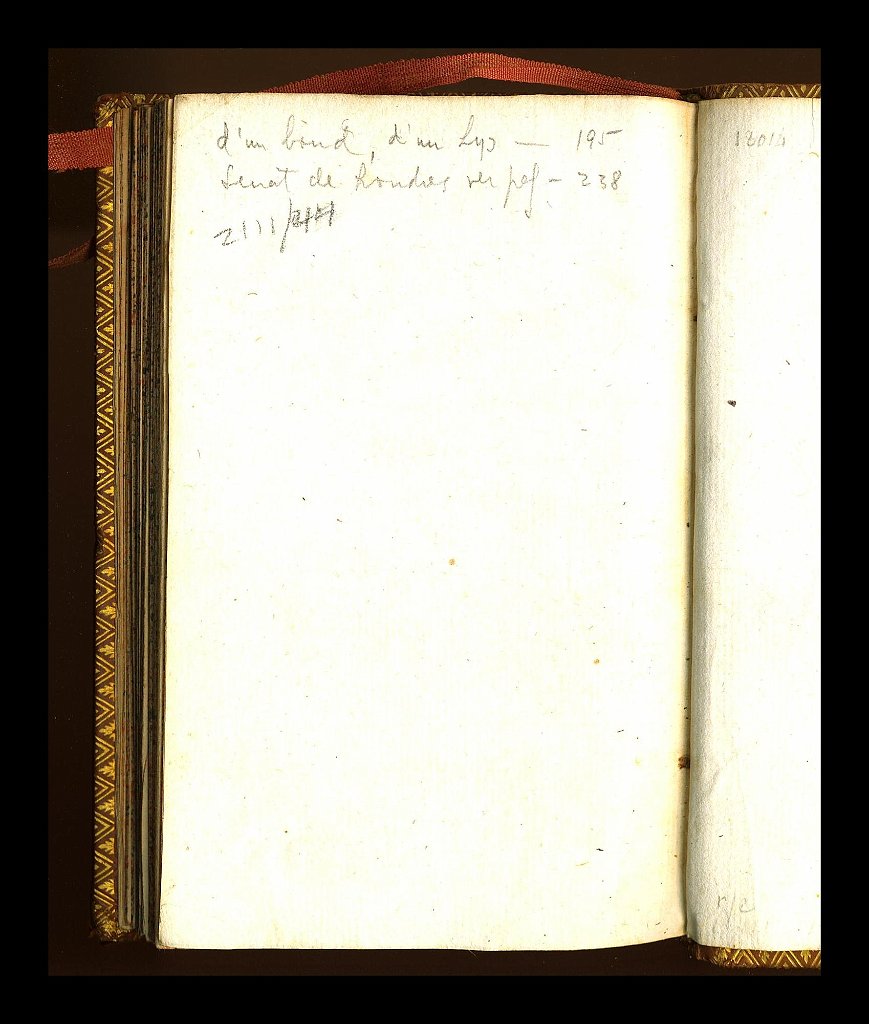 d'un bond, d'un Lys — 195
Senat de Londres ver pef - 238
2111/
13014
n/c